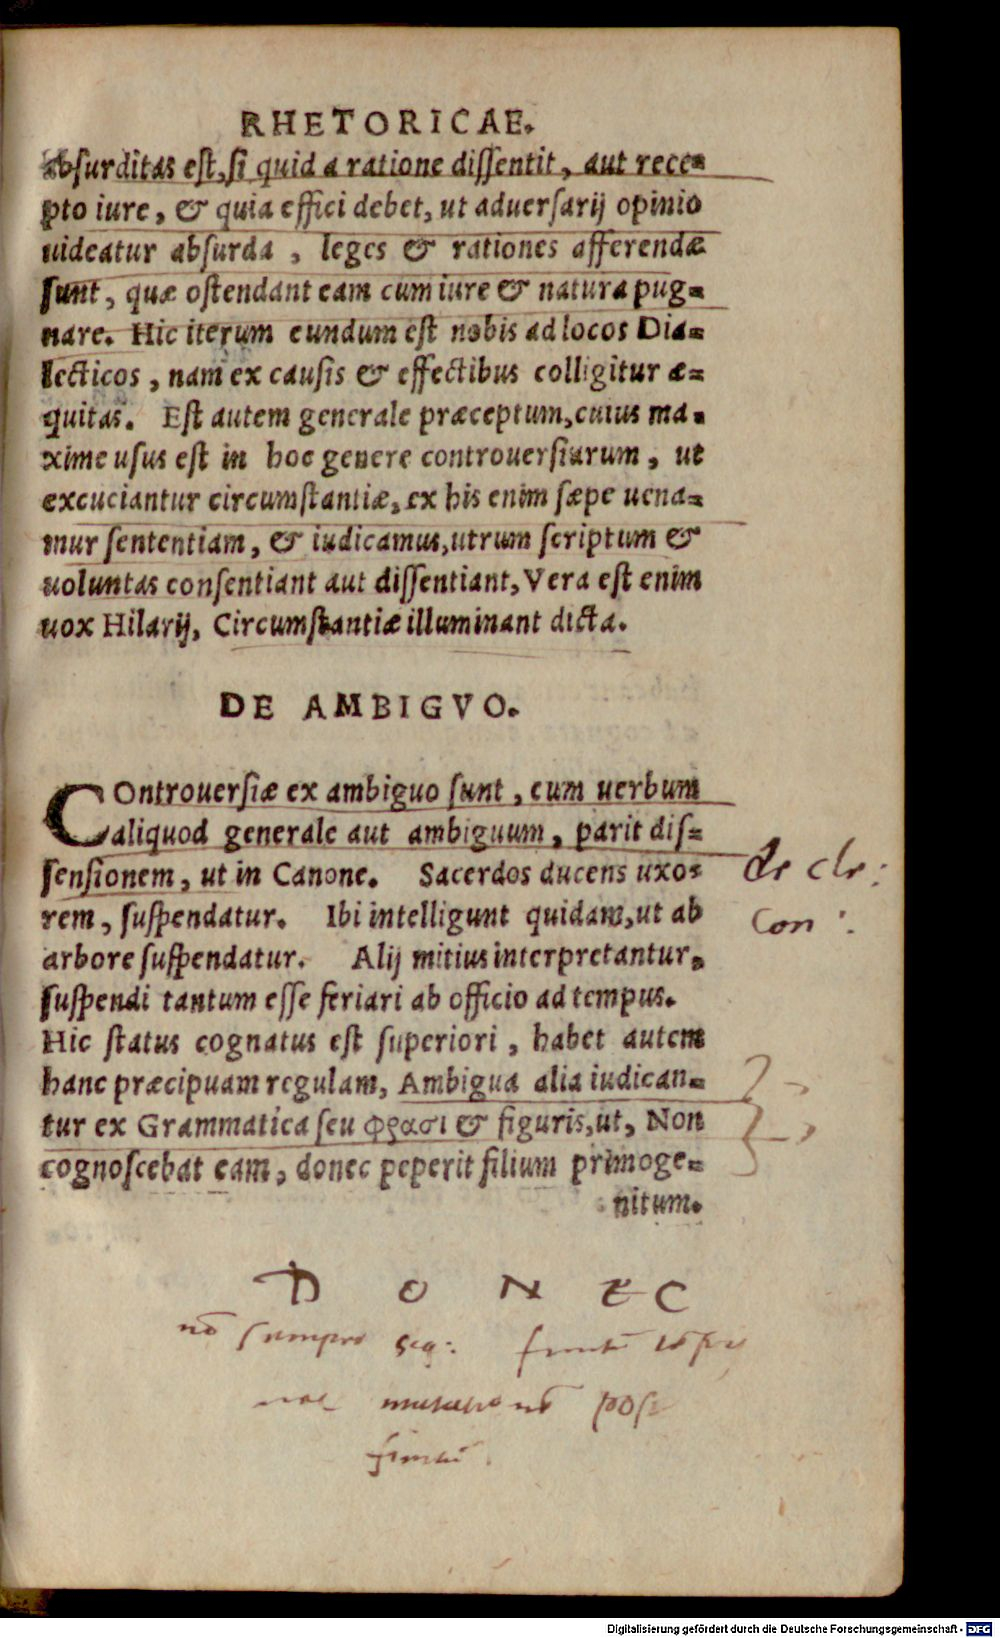 RHETORICAE.
absurditas est, si quid a ratione dissentit, aut rece-
pto iure, & quia effici debet, ut aduersarij opinio
uideatur absurda, leges & rationes afferendæ
sunt, quæ ostendant eam cum iure & natura pug-
nare. Hic iterum eundum est nobis ad locos Dia-
lecticos, nam ex causis & effectibus colligitur æ-
quitas. Est autem generale præceptum, cuius ma-
xime usus est in hoc genere controuersiarum, ut
excuciantur circumstantiæ, ex his enim sæpe uena-
mur sententiam, & iudicamus, utrum scriptum &
uoluntas consentiant aut dissentiant, Vera est enim
uox Hilarij, Circumstantiæ illuminant dicta.
DE AMBIGVO.
COntrouersiæ ex ambiguo sunt, cum uerbum
aliquod generale aut ambiguum, parit dis-
sensionem, ut in Canone. Sacerdos ducens uxo-
rem, suspendatur. Ibi intelligunt quidam, ut ab
arbore suspendatur. Alij mitius interpretantur,
suspendi tantum esse feriari ab officio ad tempus.
Hic status cognatus est superiori, habet autem
hanc præcipuam regulam, Ambigua alia iudican-
tur ex Grammatica seu φρασι & figuris, ut, Non
cognoscebat eam, donec peperit filium primoge-
nitum.
de cle:
Con:
DONEC
nō semper seq:
Digitalisierung gefördert durch die Deutsche Forschungsgemeinschaft - DFG